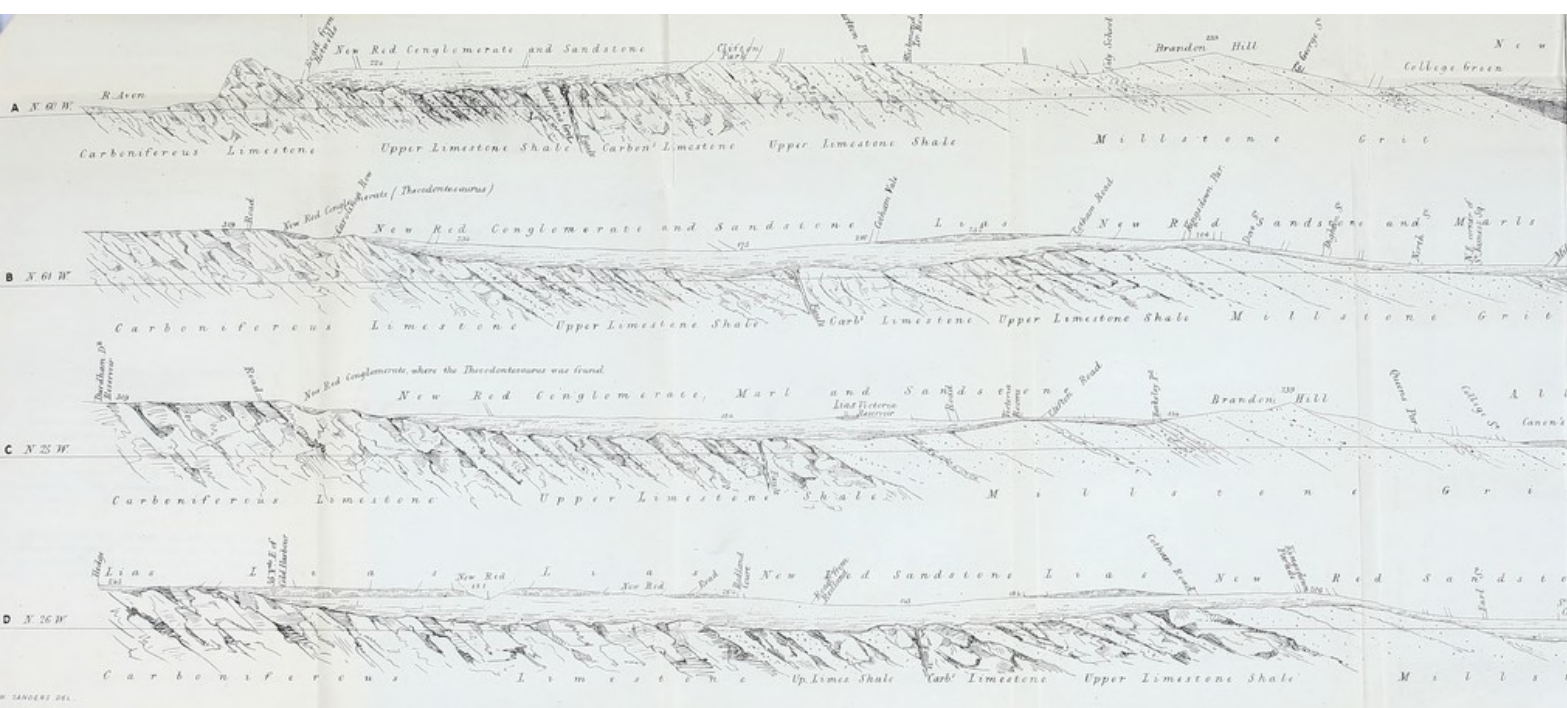 Road from
New Red Conglomerate and Sandstone
Clifton Park
Richmond
Brandon Hill
259
St George St
New
College Green
R. Avon
224
A N. 60 W.
Carboniferous Limestone Upper Limestone Shale Fault Carbons Limestone Upper Limestone Shale Millstone Grit
Road
New Red Conglomerate (Thecodontosaurus)
New Red Conglomerate and Sandstone
Cotham Vale
Lias
Cotham Road
New Red Sandstone and Marls
Kingsdown Par.
Dove St
North St
B N. 61 W.
Fault
Carboniferous Limestone Upper Limestone Shale Carbs Limestone Upper Limestone Shale Millstone Grit
Durdham Dn Reservoir
309
Road
New Red Conglomerate, where the Thecodontosaurus was found.
New Red Conglomerate, Marl and Sandstone
Lias Victoria Reservoir
Road
Victoria Rooms
Clifton Road
Berkeley Pl
Brandon Hill
259
Queens Par.
College St
Al
Canon's
C N. 25 W.
Fault
Carboniferous Limestone Upper Limestone Shale Millstone Gri
Hedge
Lias Lias
New Red
Lias
New Red
Road
Redland Court
New Red Sandstone
Road from Redland
Lias
Cotham Road
New Red Sandst
Kingsdown Parade
Earl St
D N. 26 W.
Carboniferous Limestone Up. Limes Shale Carbs Limestone Upper Limestone Shale Mills
W. SANDERS DEL.